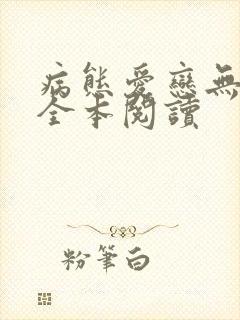 病態愛戀無
全本閱讀
粉筆白